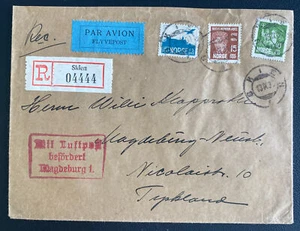 Rec.
PAR AVION
FLYVEPOST
NORGE
NORGE
R
Skien
04444
Herrn Willi Klapproth
Magdeburg-Neust.
Nicolaistr. 10
Tyskland
Mit Luftpost
befördert
Magdeburg 1.